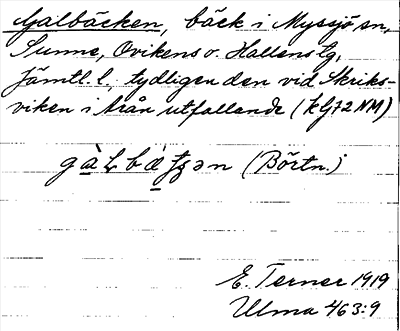 Galbäcken, bäck i Myssjö sn,
Sunne, Ovikens o. Hallens tg,
Jämtl. l., tydligen den vid Skriks-
viken i Nån utfallande (kbl 72 NM)
(Börtn.)
E. Terner 1919
Ulma 463:9